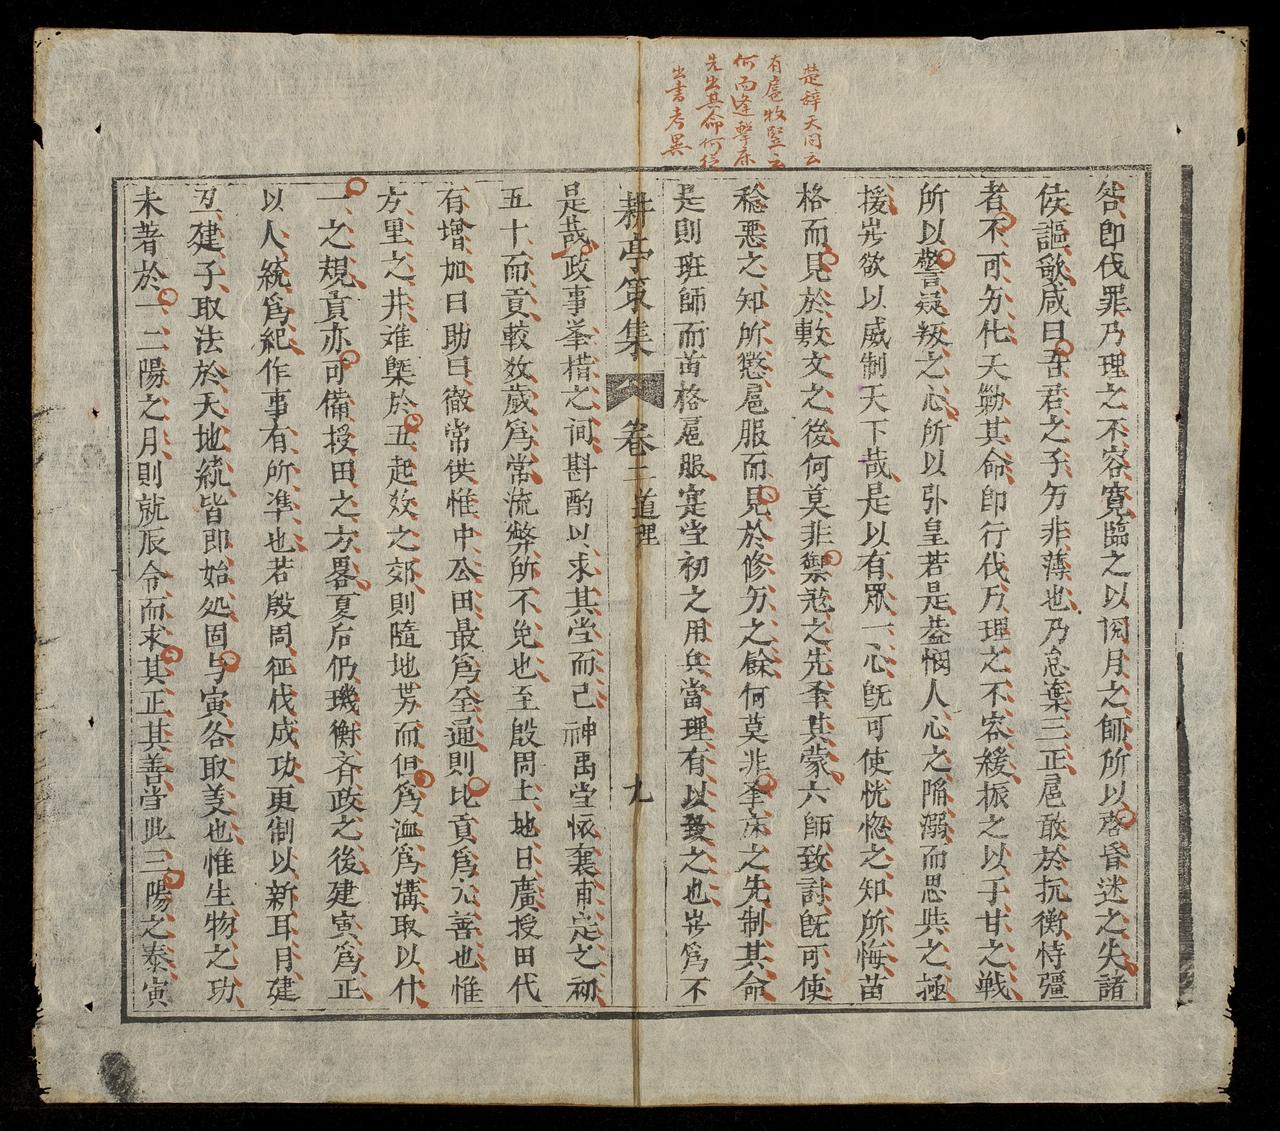 楚辞天問云
有扈牧竪云
何而逢撃床
先出其命何從
出書考異
咎即伐罪乃理之不容寛臨之以閱月之師所以啓昏迷之失諸
侯謳歌咸曰吾君之子夯非薄也乃怠棄三正扈敢於抗衡恃彊
者不可夯化天勦其命即行伐乃理之不容緩振之以于甘之戦
所以警疑叛之心所以弘皇若是恭憫人心之陥溺而思拱之極
援豈欲以威制天下哉是以有眾一心既可使恍惚之知所悔苗
格而見於敷文之後何莫非禦寇之先奉其蒙六師致討既可使
稔悪之知所懲扈服而見於修夯之餘何莫非奉床之先制其命
是則班師而苗格扈服寔堂初之用兵當理有以致之也豈為不
耕亭策集
卷二
道理
九
是哉政事峯措之间斟酌以求其堂而己神禹堂懷襄甫定之初
五十而貢較效歲為常流弊所不免也至殷周土地日廣授田代
有增加曰助曰徹常供惟中公田最為全通則比貢為元善也惟
方里之井难槩於五起效之郊則隨地芳而但為洫為溝取以什
一之規貢亦可備授田之方畧夏后仍璣衡齐政之後建寅為正
以人統為紀作事有所凖也若殷周征伐成功更制以新耳目建
丑建子取法於天地統皆即始処固与寅各取义也惟生物之功
未著於一二陽之月則就辰令而求其正其善当此三陽之泰寅